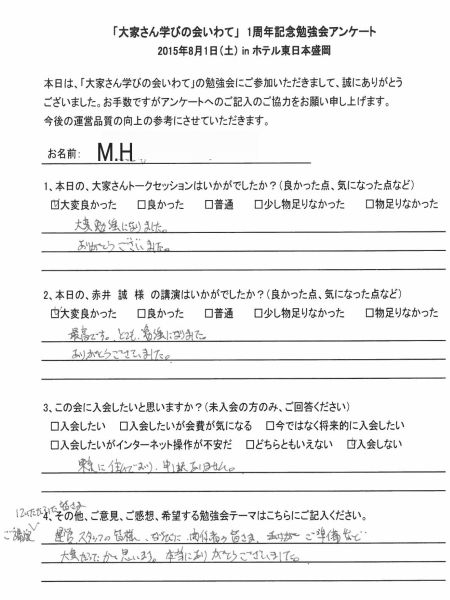 「大家さん学びの会いわて」 1周年記念勉強会アンケート
2015年8月1日(土) in ホテル東日本盛岡
本日は、「大家さん学びの会いわて」の勉強会にご参加いただきまして、誠にありがとう
ございました。お手数ですがアンケートへのご記入のご協力をお願い申し上げます。
今後の運営品質の向上の参考にさせていただきます。
お名前: M.H
1、本日の、大家さんトークセッションはいかがでしたか?(良かった点、気になった点など)
☑大変良かった □良かった □普通 □少し物足りなかった □物足りなかった
大変勉強になりました。
ありがとうございました。
2、本日の、赤井 誠 様 の講演はいかがでしたか?(良かった点、気になった点など)
☑大変良かった □良かった □普通 □少し物足りなかった □物足りなかった
最高です。とても勉強になりました
ありがとうございました。
3、この会に入会したいと思いますか?(未入会の方のみ、ご回答ください)
□入会したい □入会したいが会費が気になる □今ではなく将来的に入会したい
□入会したいがインターネット操作が不安だ □どちらともいえない ☑入会しない
東京に住んでおり、申し訳ありません。
4、その他、ご意見、ご感想、希望する勉強会テーマはこちらにご記入ください。
ご講演いただいた皆さま
運営スタッフの皆様、ならびに関係者の皆さま、ご準備など
大変だったかと思います。本当にありがとうございました。